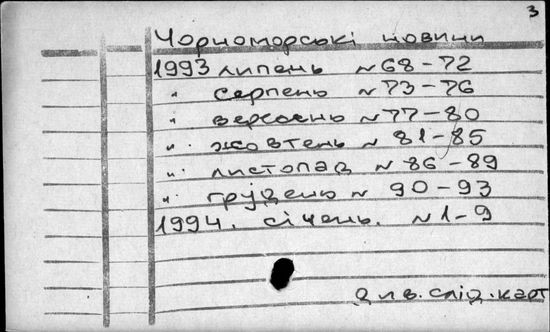 3
Чорноморські новини
1993 липень №68-72
" серпень №73-76
" вересень №77-80
" жовтень № 81-85
" листопад № 86-89
" грудень № 90-93
1994. січень. №1-9
див. слід. карт